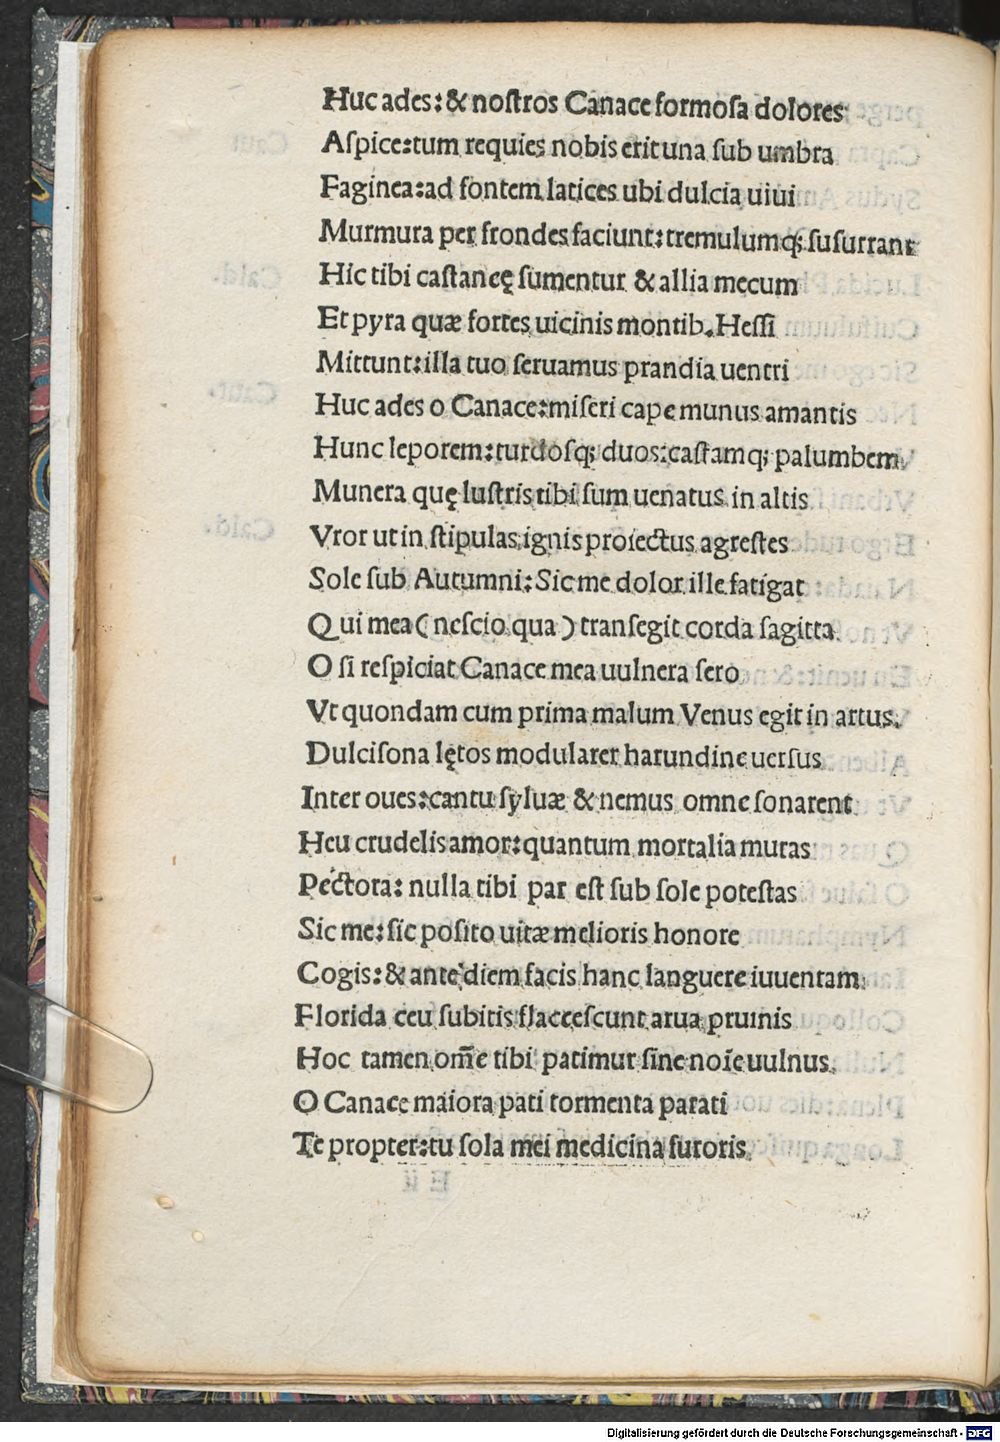 Huc ades: & noſtros Canace formoſa dolores
Aſpice: tum requies nobis erit una ſub umbra
Faginea: ad fontem latices ubi dulcia uiui
Murmura per frondes faciunt: tremulumq; ſuſurrant
Hic tibi caſtaneę ſumentur & allia mecum
Et pyra quæ fortes uicinis montib. Heſſi
Mittunt: illa tuo ſeruamus prandia uentri
Huc ades o Canace: miſeri cape munus amantis
Hunc leporem: turdoſq; duos: caſtamq; palumbem
Munera quę luſtris tibi ſum uenatus in altis
Vror ut in ſtipulas ignis proiectus agreſtes
Sole ſub Autumni: Sic me dolor ille fatigat
Qui mea (neſcio qua) tranſegit corda ſagitta
O ſi reſpiciat Canace mea uulnera ſero
Vt quondam cum prima malum Venus egit in artus.
Dulciſona lętos modularer harundine uerſus
Inter oues: cantu ſyluæ & nemus omne ſonarent
Heu crudelis amor: quantum mortalia mutas
Pectora: nulla tibi par eſt ſub ſole poteſtas
Sic me: ſic poſito uitæ melioris honore
Cogis: & ante diem facis hanc languere iuuentam
Florida ceu ſubitis flacceſcunt arua pruinis
Hoc tamen om̄e tibi patimur ſine noīe uulnus.
O Canace maiora pati tormenta parati
Te propter: tu ſola mei medicina furoris
Digitalisierung gefördert durch die Deutsche Forschungsgemeinschaft - DFG